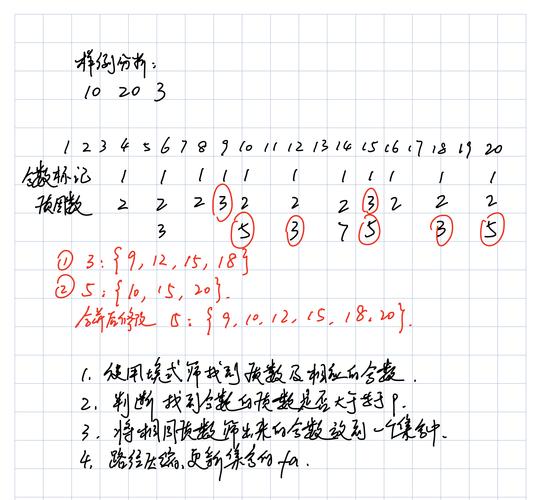 样例分析:
10 20 3
1 2 3 4 5 6 7 8 9 10 11 12 13 14 15 16 17 18 19 20
合数标记 1 1 1 1 1 1 1 1 1 1 1
质因数 2 2 2 3 2 2 2 3 2 2 2
3 5 3 7 5 3 5
① 3:{9,12,15,18}
② 5:{10,15,20}.
合并后修改 5:{9,10,12,15,18,20}.
1. 使用埃式筛找到质数及相应的合数.
2. 判断找到合数的质数是否大于等于P.
3. 将相同质数筛出来的合数放到一个集合中.
4. 路径压缩,更新集合的fa.